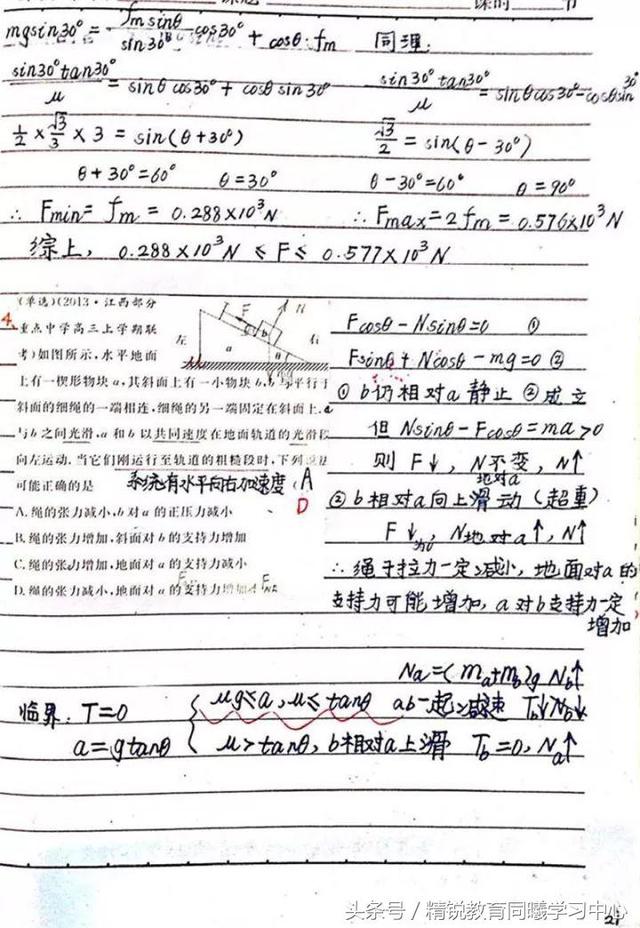 课时 节
mgsin30° = fm sinθ / sin30° cos30° + cosθ·fm 同理:
sin30°tan30° / μ = sinθcos30° + cosθsin30° sin30°tan30° / μ = sinθcos30° - cosθsin30°
1/2 × √3/3 × 3 = sin(θ+30°) √3/2 = sin(θ-30°)
θ+30°=60° θ=30° θ-30°=60° θ=90°
∴ Fmin = fm = 0.288×10³N ∴ Fmax = 2fm = 0.576×10³N
综上, 0.288×10³N ≤ F ≤ 0.577×10³N
4.
(单选)(2013·江西部分
重点中学高三上学期联
考)如图所示,水平地面
左 右
T F b N a θ
上有一楔形物块a,其斜面上有一小物块b,b与平行于
斜面的细绳的一端相连,细绳的另一端固定在斜面上.a
与b之间光滑,a和b以共同速度在地面轨道的光滑段
向左运动.当它们刚运行至轨道的粗糙段时,下列说法
可能正确的是 系统有水平向右加速度 (A
D
A.绳的张力减小,b对a的正压力减小
B.绳的张力增加,斜面对b的支持力增加
C.绳的张力增加,地面对a的支持力减小
D.绳的张力减小,地面对a的支持力增加
Fcosθ - Nsinθ = 0 ①
Fsinθ + Ncosθ - mg = 0 ②
① b仍相对a静止 ②成立
但 Nsinθ - Fcosθ = ma > 0
则 F↓, N地对a不变, N↑
② b相对a向上滑动(超重)
F↓为0, N地对a↑, N↑
∴ 绳子拉力一定减小, 地面对a的
支持力可能增加, a对b支持力一定
增加
Na=(ma+mb)g Nb↑
临界: T=0 μg≤a, μ≤tanθ ab一起减速 Tb↓Nb↓
a=gtanθ μ>tanθ, b相对a上滑 Tb=0, Na↑
头条号 / 精锐教育同曦学习中心
21